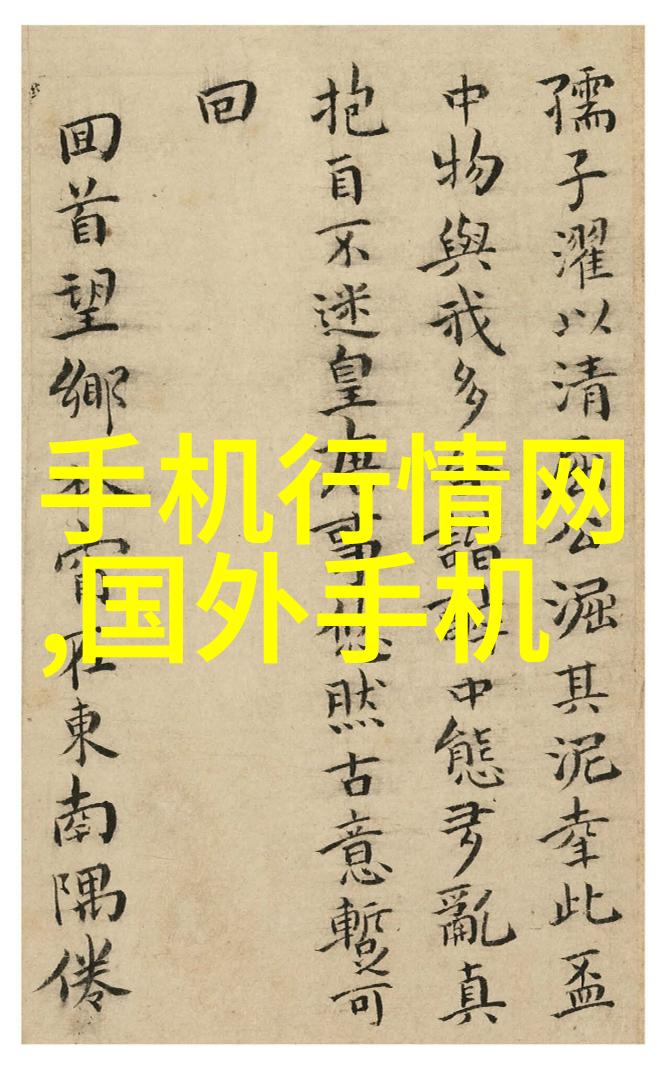 孺子濯以清
公淈其泥聊此盃
中物與我多
詣
中態多亂真
抱自不迷皇
事悠然古意暫可
回
回首望鄉
林宵在東南隅倦
手机行情网
,国外手机